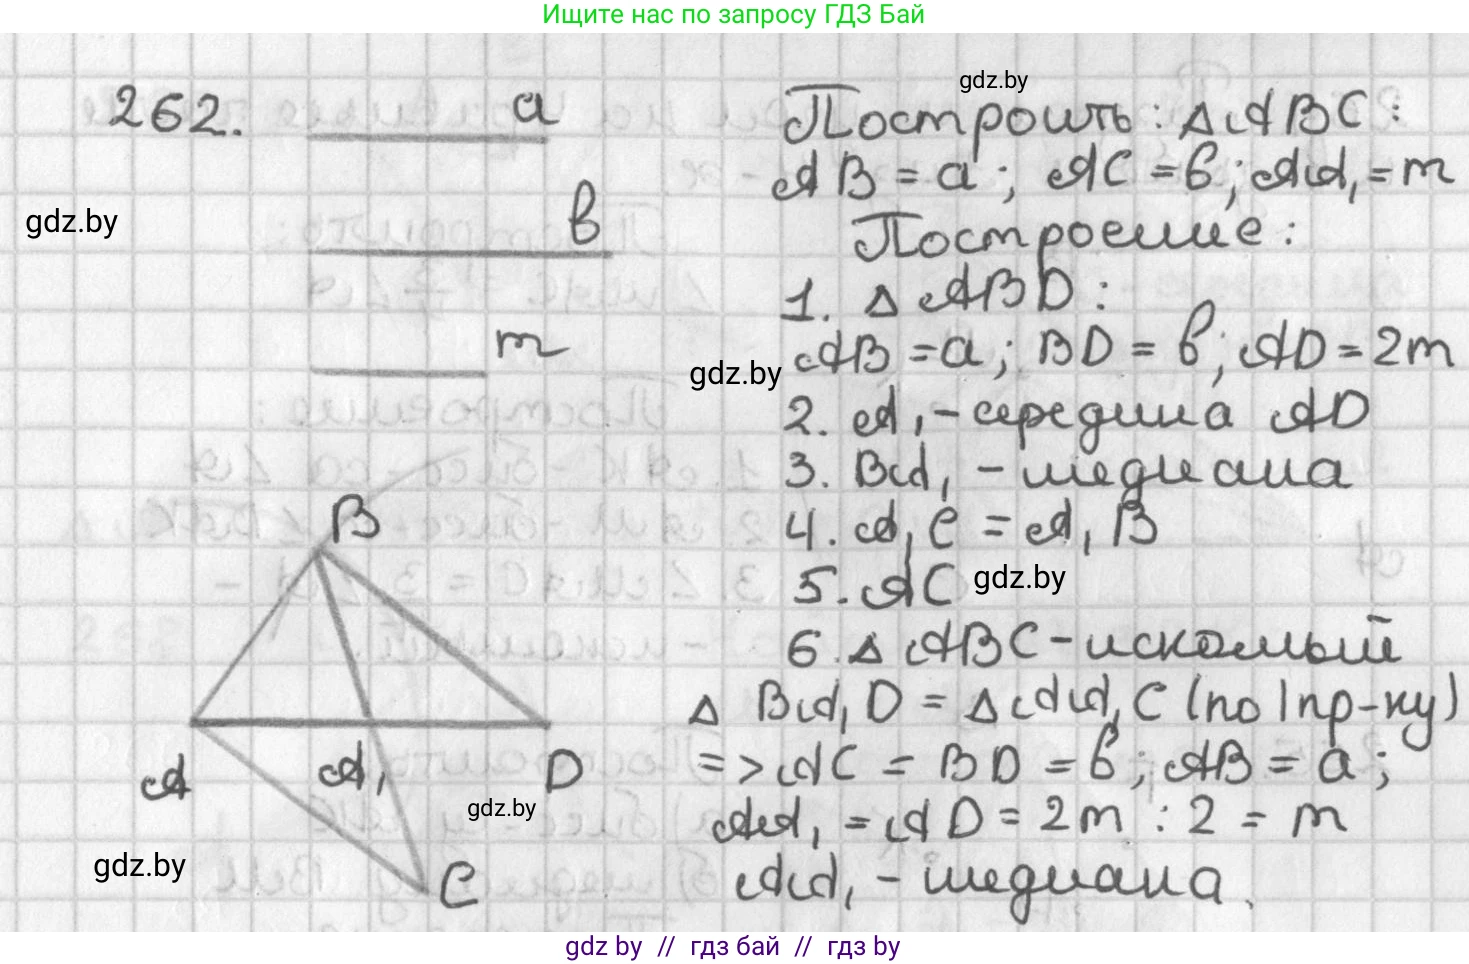 Ищите нас по запросу ГДЗ Бай
262.
a
в
m
gdz.by
gdz.by
Построить: △ABC:
AB = a; AC = в; AA₁ = m
Построение:
1. △ ABD:
AB = a; BD = в; AD = 2m
gdz.by
2. A₁ - середина AD
3. BA₁ - медиана
4. A₁C = A₁B
5. AC
gdz.by
6. △ ABC - искомый
△ BA₁D = △AA₁C (по I пр-ку)
=> AC = BD = в; AB = a;
AA₁ = AD = 2m : 2 = m
AA₁ - медиана.
B
A
A₁
D
C
gdz.by
gdz.by
gdz by // гдз бай // гдз by